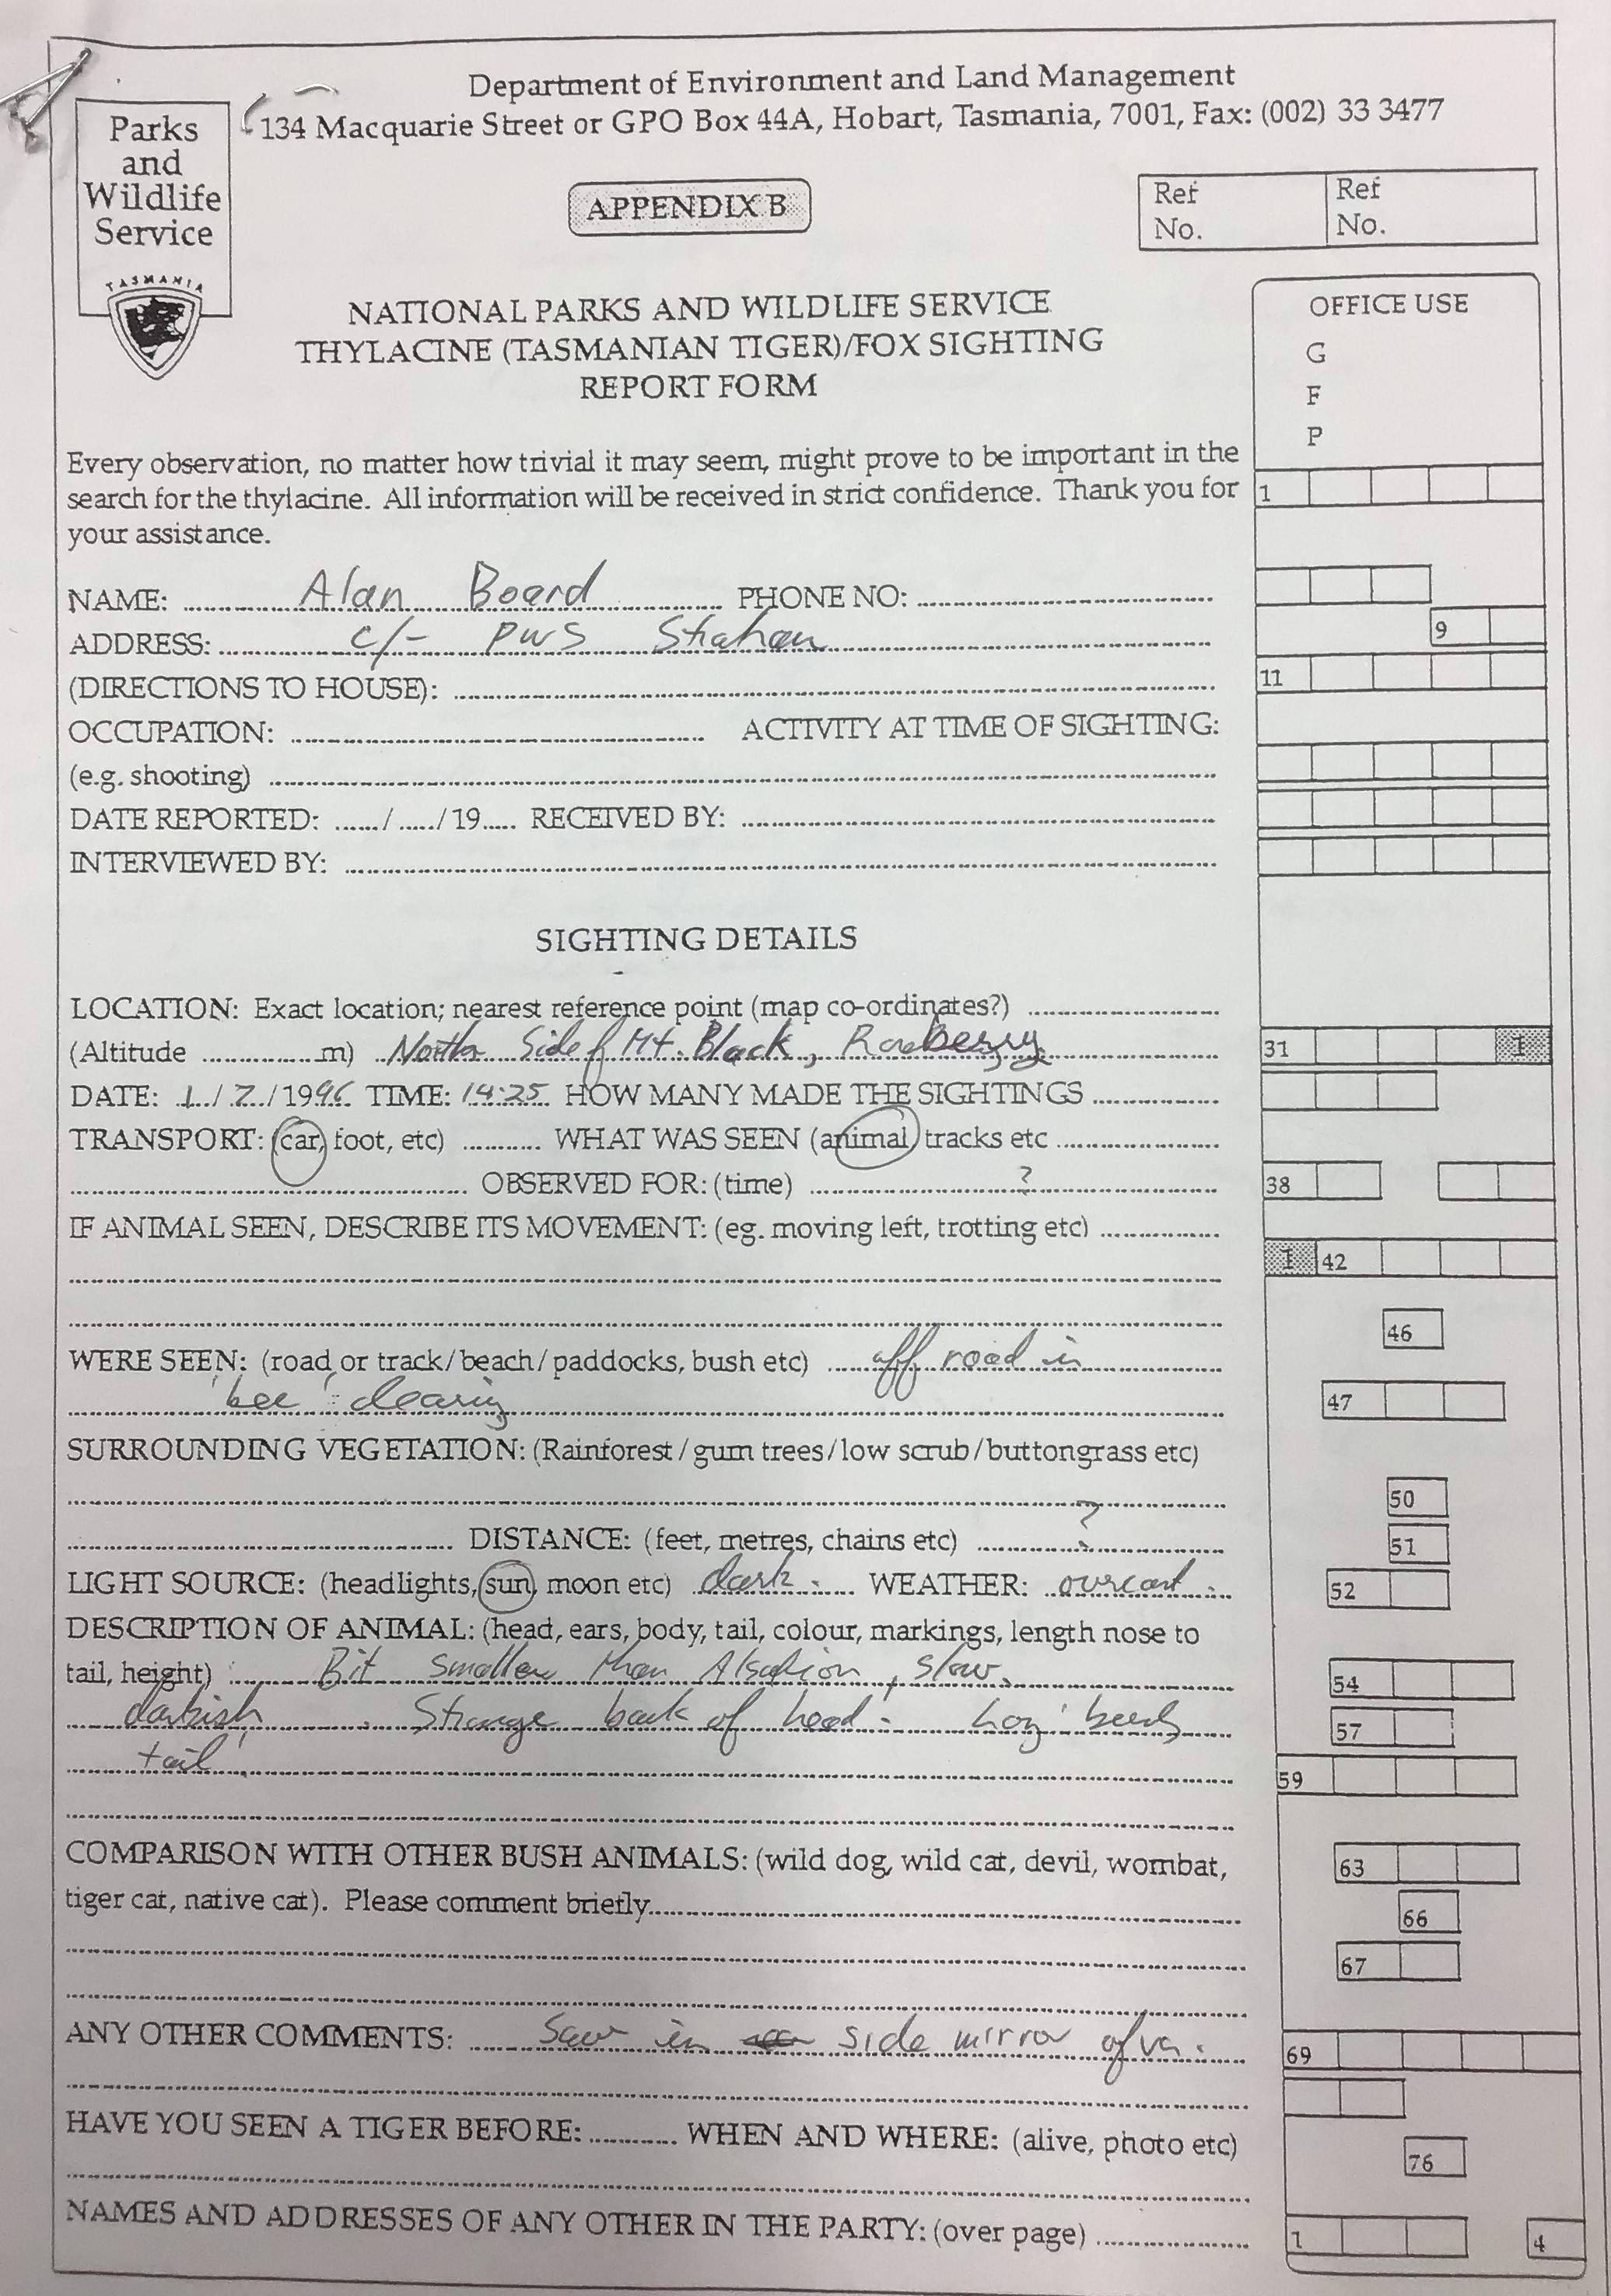 Department of Environment and Land Management
134 Macquarie Street or GPO Box 44A, Hobart, Tasmania, 7001, Fax: (002) 33 3477
Parks
and
Wildlife
Service
TASMANIA
APPENDIX B
Ref No.
Ref No.
NATIONAL PARKS AND WILDLIFE SERVICE
THYLACINE (TASMANIAN TIGER)/FOX SIGHTING
REPORT FORM
OFFICE USE
G
F
P
Every observation, no matter how trivial it may seem, might prove to be important in the
search for the thylacine. All information will be received in strict confidence. Thank you for
your assistance.
1
NAME: Alan Board PHONE NO:
ADDRESS: c/- PWS Strahan
9
(DIRECTIONS TO HOUSE):
11
OCCUPATION: ACTIVITY AT TIME OF SIGHTING:
(e.g. shooting)
DATE REPORTED: ....../ ...../ 19..... RECEIVED BY:
INTERVIEWED BY:
SIGHTING DETAILS
LOCATION: Exact location; nearest reference point (map co-ordinates?)
(Altitude m) North Side of Mt. Black, Rosebery
31 I
DATE: 1/7/1996 TIME: 14:25 HOW MANY MADE THE SIGHTINGS
TRANSPORT: (car, foot, etc) WHAT WAS SEEN (animal) tracks etc
OBSERVED FOR: (time) ?
38
IF ANIMAL SEEN, DESCRIBE ITS MOVEMENT: (eg. moving left, trotting etc)
I 42
46
WERE SEEN: (road or track/beach/paddocks, bush etc) off road in
'bee' clearing
47
SURROUNDING VEGETATION: (Rainforest/gum trees/low scrub/buttongrass etc)
50
DISTANCE: (feet, metres, chains etc) ?
51
LIGHT SOURCE: (headlights, sun, moon etc) dark. WEATHER: overcast.
52
DESCRIPTION OF ANIMAL: (head, ears, body, tail, colour, markings, length nose to
tail, height) Bit smaller than Alsation, slow.
54
darkish. Strange back of head.
57
tail'
59
COMPARISON WITH OTHER BUSH ANIMALS: (wild dog, wild cat, devil, wombat,
63
tiger cat, native cat). Please comment briefly
66
67
ANY OTHER COMMENTS: Saw in side mirror of
69
HAVE YOU SEEN A TIGER BEFORE: WHEN AND WHERE: (alive, photo etc)
76
NAMES AND ADDRESSES OF ANY OTHER IN THE PARTY: (over page)
1 4